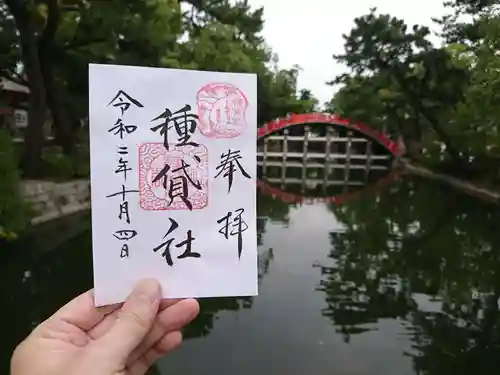 奉拝
種貸社
令和二年十月四日